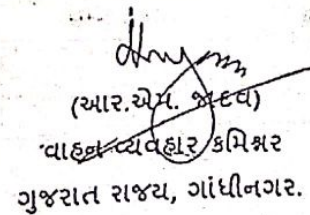 (આર.એમ. જાદવ)
વાહન વ્યવહાર કમિશ્નર
ગુજરાત રાજય, ગાંધીનગર.